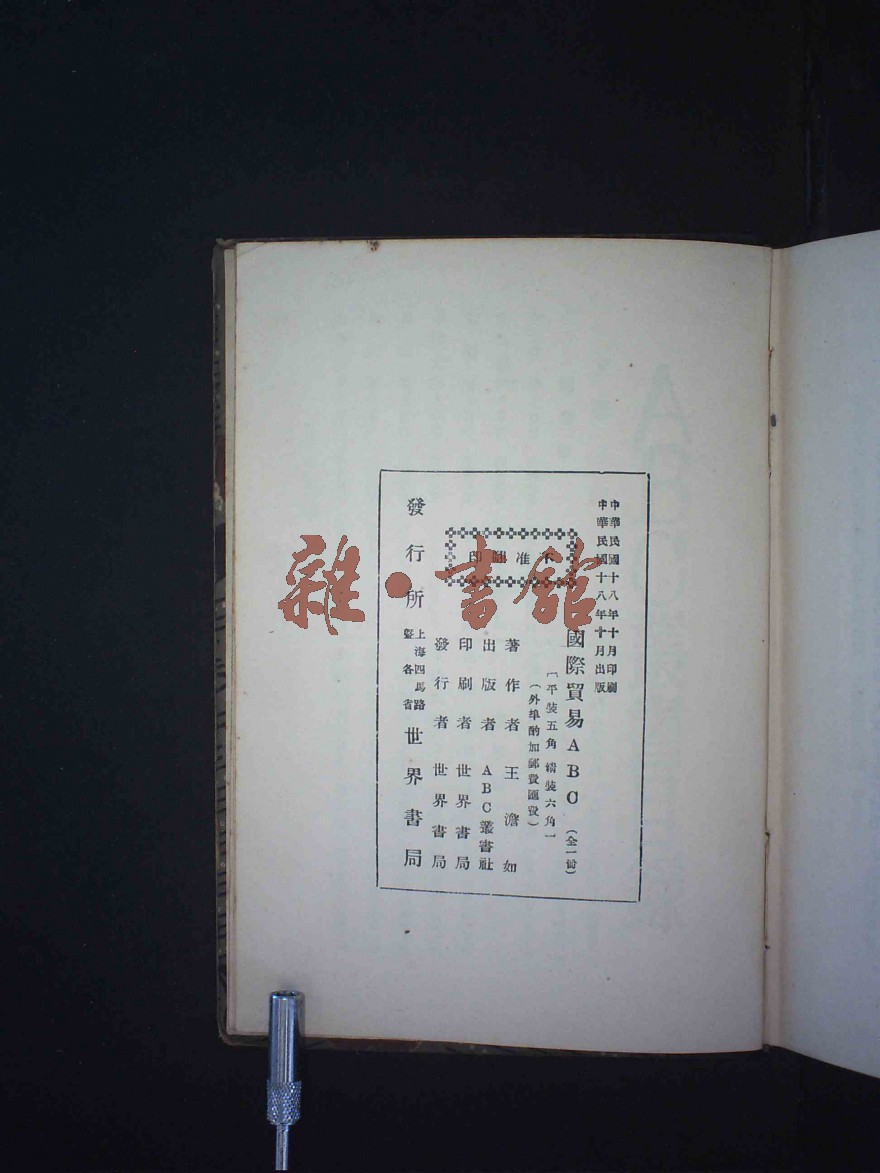 中華民國十八年十月印刷
中華民國十八年十月出版
國際貿易ABC（全一冊）
〔平裝五角 精裝六角〕
（外埠酌加郵費匯費）
不准翻印
著作者 王澹如
出版者 ABC叢書社
印刷者 世界書局
發行者 世界書局
發行所 上海四馬路暨各省 世界書局
雜·書館